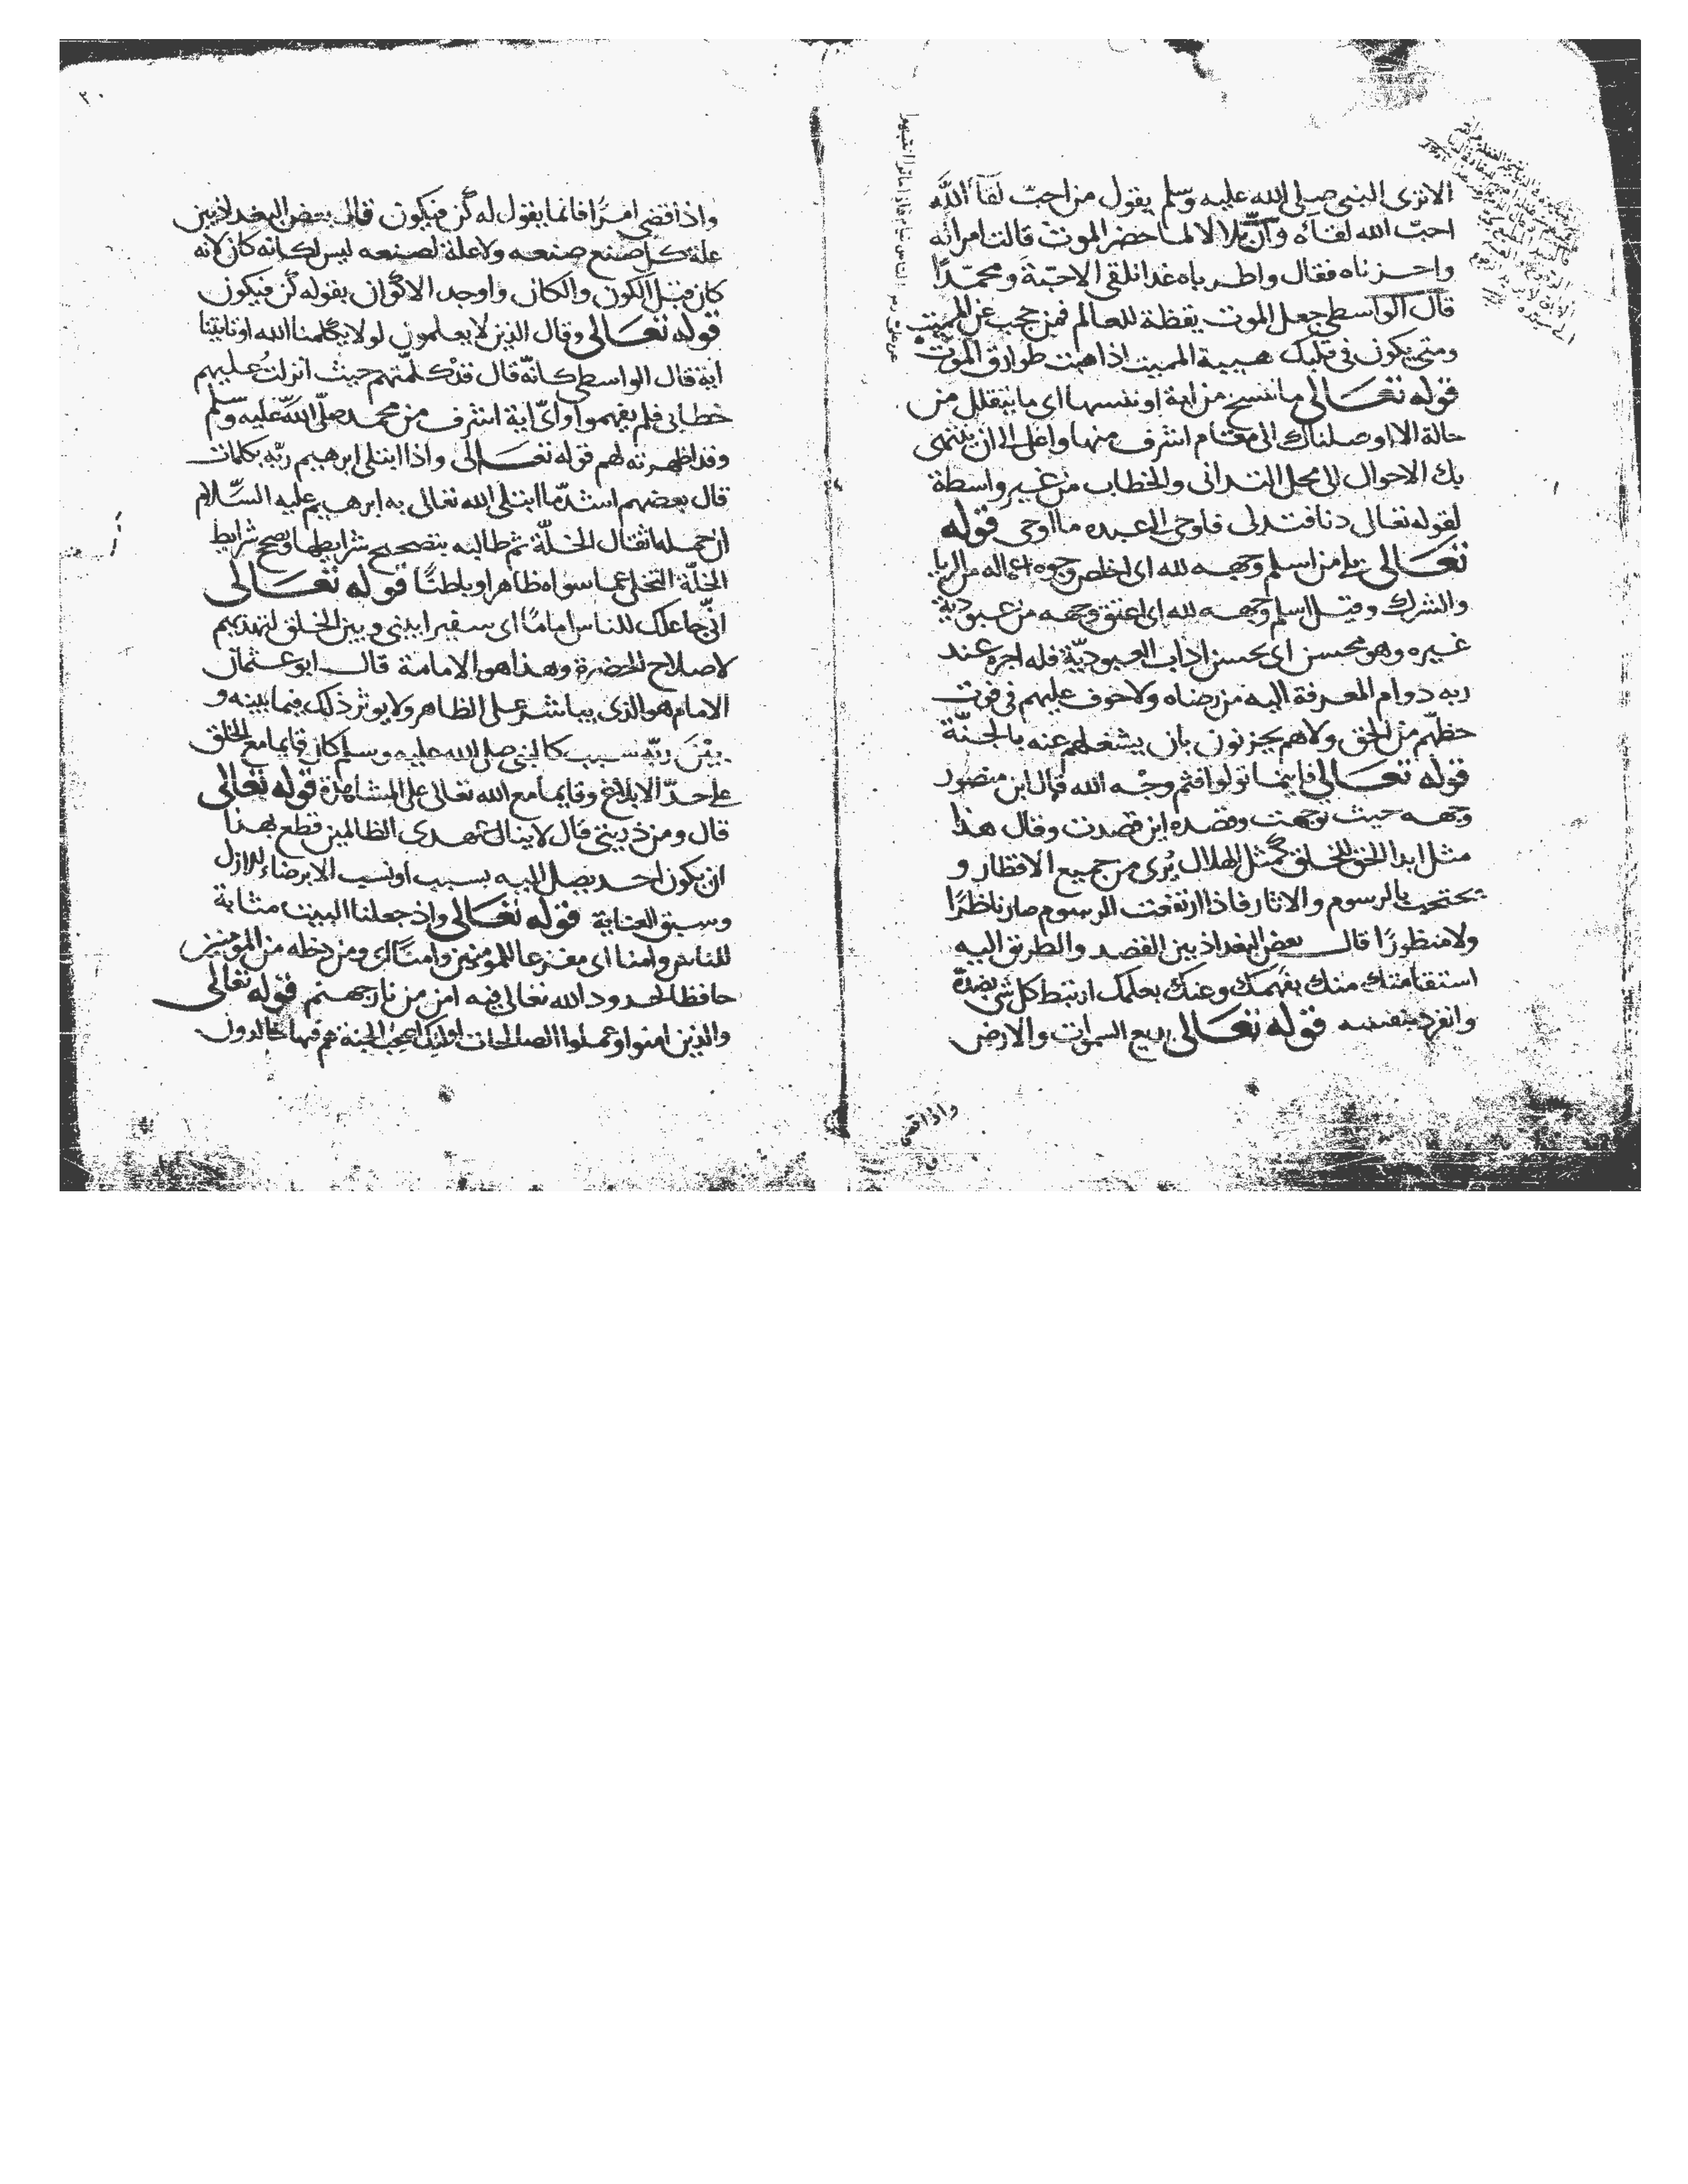 الا ترى النبي صلى الله عليه وسلم يقول من احبّ لقآ الله
احبّ الله لقاه وانّ بلالا لما حضر الموت قالت امراته
واحزناه فقال واطرباه غدا نلقى الاحبّة ومحمّدا
قال الواسطي جعل الموت يقظة للعالم فمن حجب عن المميت
ومتى يكون في قلبك هيبة المميت اذا هبت طوارق الموت
قوله تعالى ما ننسخ من اية او ننسها اى ما ينقلك من
حالة الا اوصلناك الى مقام اشرف منها واعلى الى ان ينتهى
بك الاحوال الى محل التدانى والخطاب من غير واسطة
لقوله تعالى دنا فتدلى فاوحى الى عبده ما اوحى قوله
تعالى بلى من اسلم وجهه لله اى اخلص وجوه اعماله من الريا
والشرك وقيل اسلم وجهه لله اى اعتق وجهه من عبودية
غيره وهو محسن اى يحسن اداب العبوديّة فله اجره عند
ربه دوام المعرفة اليه من رضاه ولا خوف عليهم في فوت
حظّهم من الحق ولا هم يحزنون بان يشغلهم عنه بالجنّة
قوله تعالى فاينما تولوا فثم وجه الله قال ابن منصور
وجهه حيث توجهت وقصده اين قصدت وقال هذا
مثل ابدا الحق للخلق كمثل الهلال يُرى من جميع الاقطار و
يحتجب بالرسوم والاثار فاذا ارتفعت الرسوم صار ناظرًا
ولا منظورًا قال بعض البغداذيين القصد والطريق اليه
استقامتك منك بفهمك وعنك بعلمك ارتبط كل شى بضدّه
وانفرد بنفسه قوله تعالى بديع السموات والارض
واذا قضى
٢٠
واذا قضى امرًا فانما يقول له كن فيكون قال بعض البغداذيين
علة كل صنع صنعه ولا علة لصنعه ليس لكانه كان لانه
كان قبل الكون والكان واوجد الاكوان بقوله كن فيكون
قوله تعالى وقال الذين لا يعلمون لولا يكلمنا الله او تاتينا
اية قال الواسطي كانّه قال قد كلّمتهم حيث انزلت عليهم
خطابي فلم يفهموا واىّ اية اشرف من محمد صلّى الله عليه وسلّم
وقد اظهرته لهم قوله تعالى واذا ابتلى ابرهيم ربّه بكلمات
قال بعضهم اشدّ ما ابتلى الله تعالى به ابرهيم عليه السّلام
ان حمله اثقال الخلّة ثم طالبه بتصحيح شرايطها وتصح شرايط
الخلّة التخلى عما سواه ظاهرا وباطنًا قوله تعالى
انّى جاعلك للناس امامًا اى سفيرا بينى وبين الخلق لتهديهم
لاصلاح الحضرة وهذا هو الامامة قال ابو عثمان
الامام هو الذى يباشر على الظاهر ولا يوثر ذلك فيما بينه و
بيْنَ ربّه سبب كالنبى صلى الله عليه وسلم كان قايما مع الخلق
على حدّ الابلاغ وقايما مع الله تعالى على المشاهدة قوله تعالى
قال ومن ذريتى قال لا ينال عهدى الظالمين قطع بهذا
ان يكون احد يصل اليه بسبب او نسب الا برضاء الازل
وسبق العناية قوله تعالى واذ جعلنا البيت مثابة
للناس وامنا اى مفزعا للمومنين وامنًا لك ومن دخله من المومنين
حافظا لحدود الله تعالى فيه امن من نار جهنم قوله تعالى
والذين امنوا وعملوا الصالحات اولئك اصحاب الجنة هم فيها خالدون